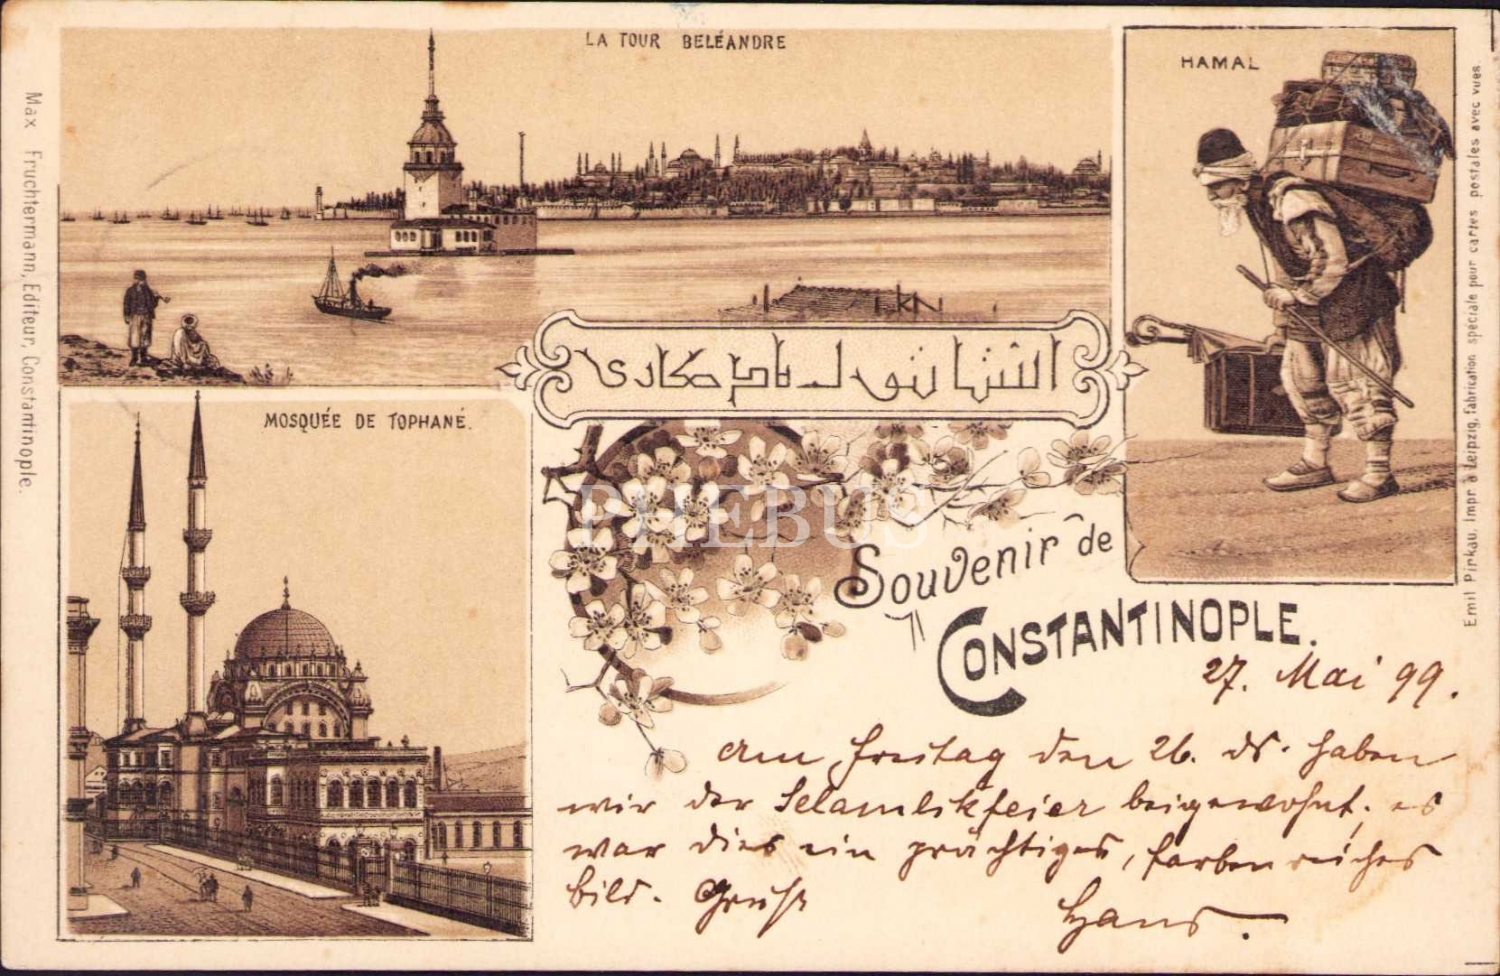 LA TOUR BELÉANDRE
HAMAL
Max Fruchtermann, Editeur, Constantinople.
Emil Pinkau, Impr. à Leipzig, fabrication spéciale pour cartes postales avec vues
MOSQUÉE DE TOPHANÉ.
PHEBUS
Souvenir de
CONSTANTINOPLE.
27. Mai 99.
Am Freitag den 26. ds. haben
wir der Selamlikfeier beigewohnt; es
war dies ein prächtiges, farbenreiches
Bild. Gruß
Hans.